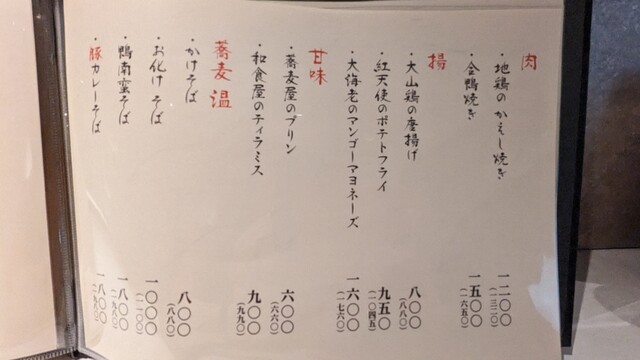 肉
・地鶏のかえし焼き 一二〇〇（一三二〇）
・合鴨焼き 一五〇〇（一六五〇）
揚
・大山鶏の唐揚げ 八〇〇（八八〇）
・紅天使のポテトフライ 九五〇（一〇四五）
・大海老のマンゴーマヨネーズ 一六〇〇（一七六〇）
甘味
・蕎麦屋のプリン 六〇〇（六六〇）
・和食屋のティラミス 九〇〇（九九〇）
蕎麦 温
・かけそば 八〇〇（八八〇）
・お化けそば 一〇〇〇（一一〇〇）
・鴨南蛮そば 一八〇〇（一九八〇）
・豚カレーそば 一八〇〇（一九八〇）